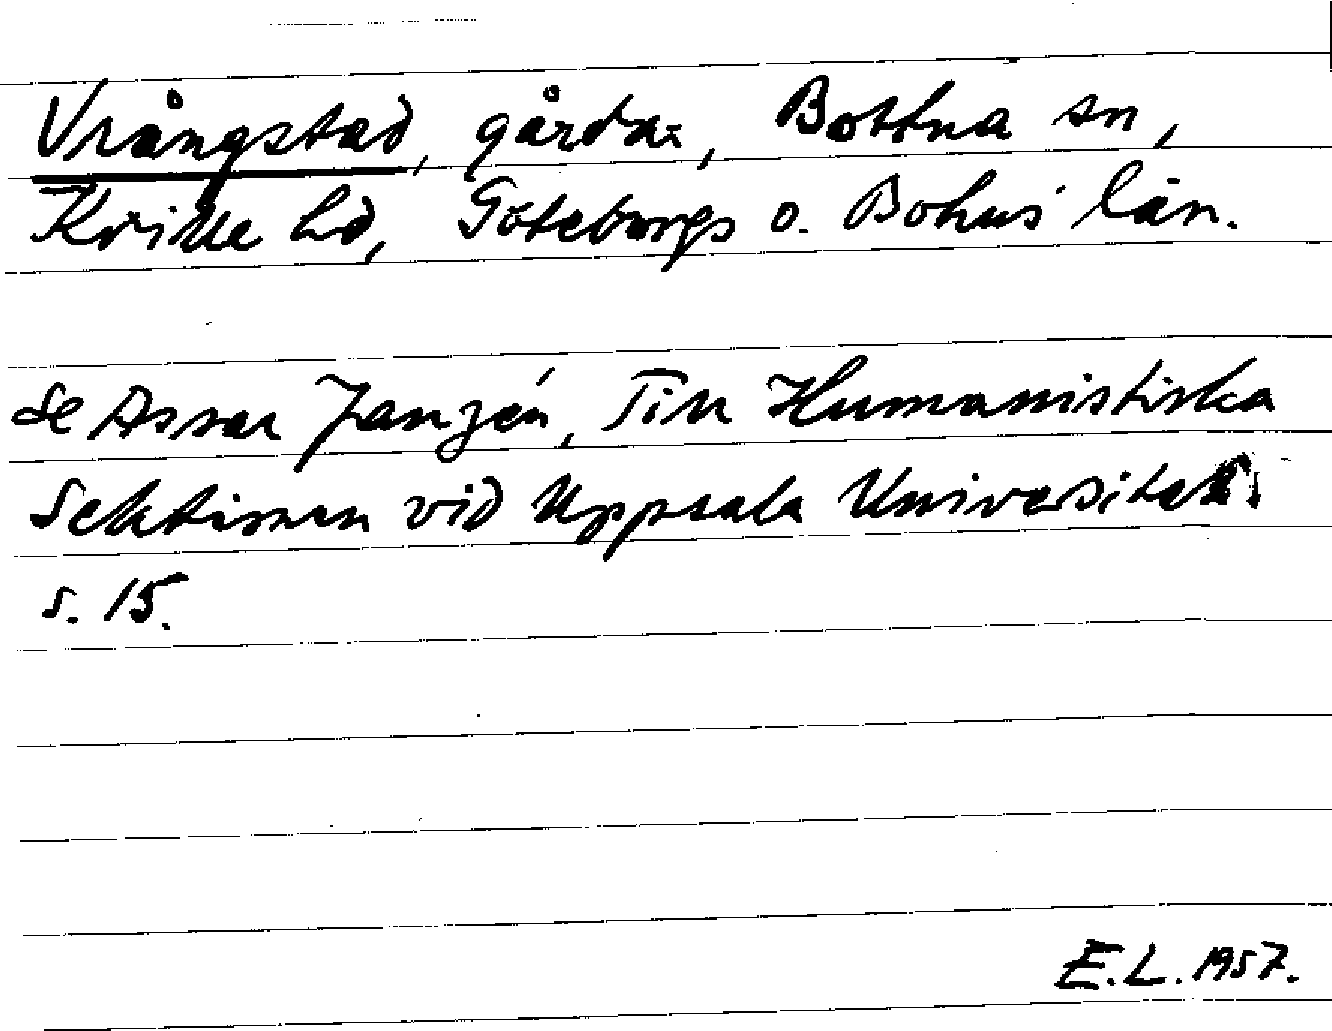 Vrångstad, gårdar, Bottna sn,
Kville hd, Göteborgs o. Bohus län.
Se Assar Janzén, Till Humanistiska
Sektionen vid Uppsala Universitet.
s. 15.
E.L. 1957.